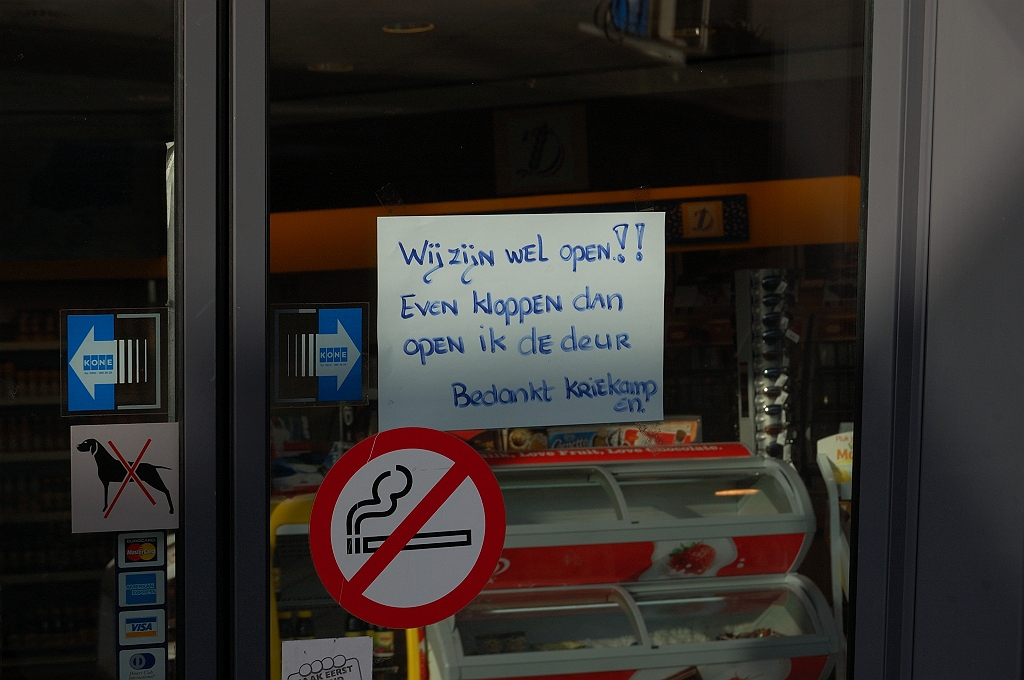 Wij zijn wel open!!
Even kloppen dan
open ik de deur
Bedankt Kriekamp
en.
KONE
KONE
Love Fruit, Love Chocolate.
MasterCard
AMERICAN EXPRESS
VISA
AAK EERST